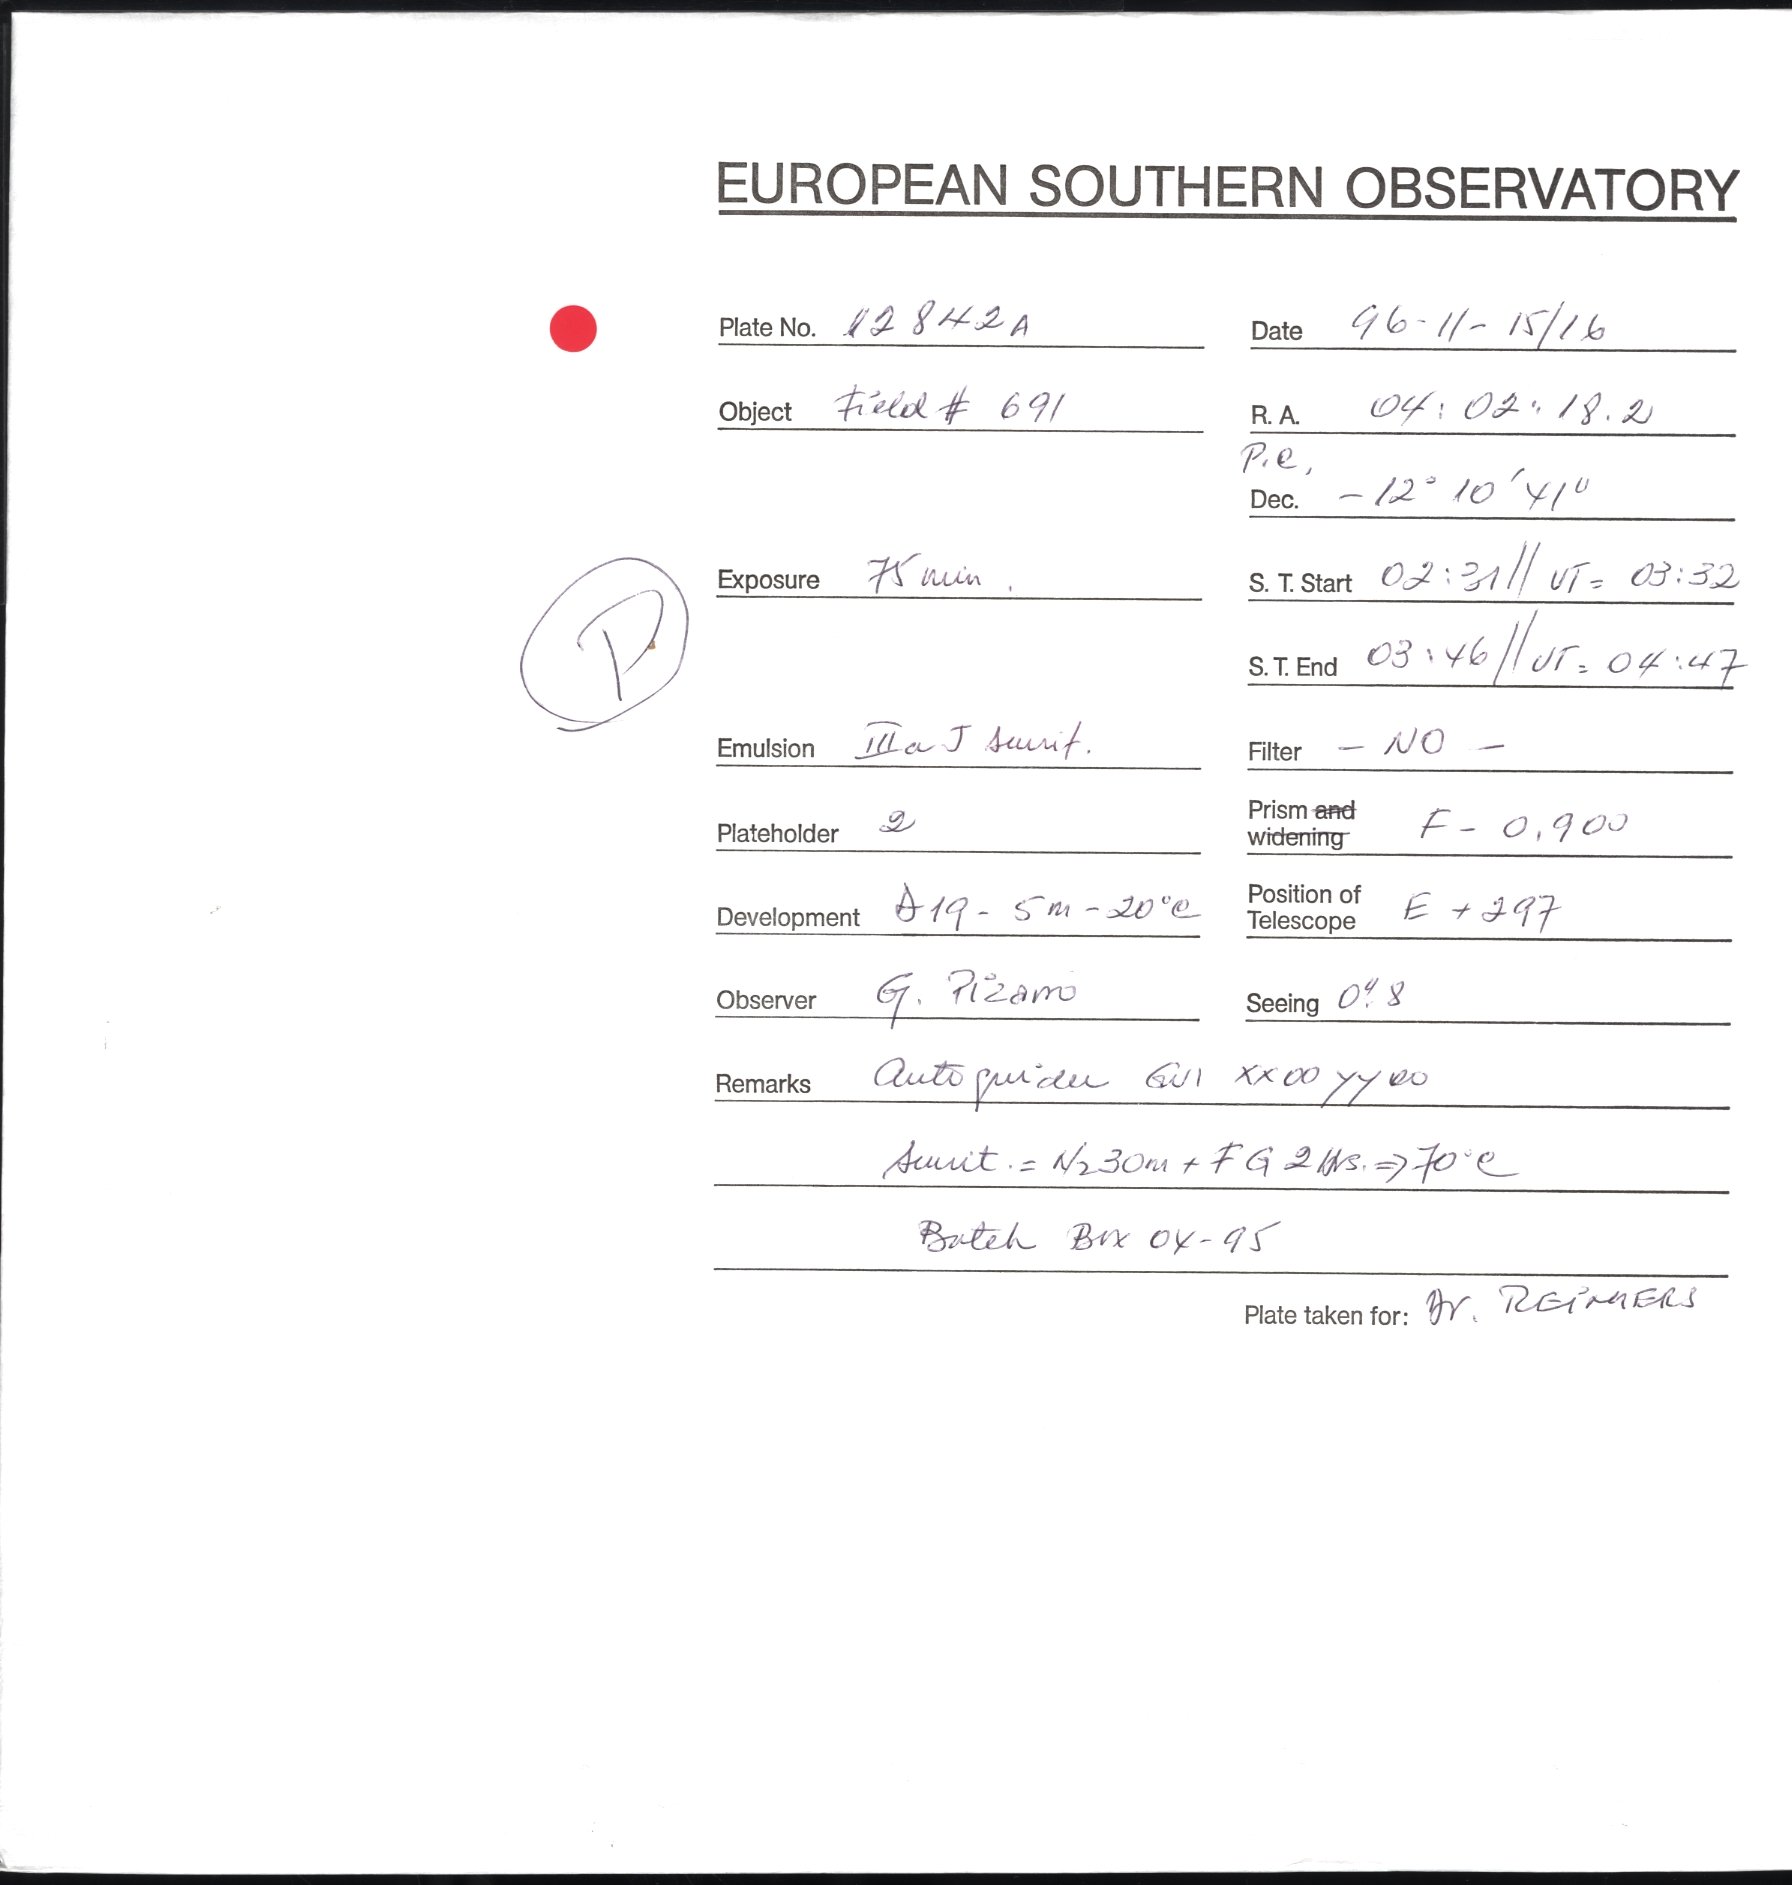 EUROPEAN SOUTHERN OBSERVATORY
Plate No. 12842A
Date 96-11-15/16
Object Field # 691
R. A. 04:02:18.2
P.e,
Dec. -12° 10' 41"
Exposure 75 min.
S. T. Start 02:31 // UT= 03:32
P
S. T. End 03:46 // UT= 04:47
Emulsion IIIa J sensit.
Filter - NO -
Plateholder 2
Prism and widening F - 0.900
Development D19 - 5m - 20°C
Position of Telescope E + 297
Observer G. Pizarro
Seeing 0".8
Remarks Autoguider GU1 XX00 YY00
Sensit. = N2 30m + FG 2 Hrs. => 70°C
Batch Box 04-95
Plate taken for: Dr. REIMERS